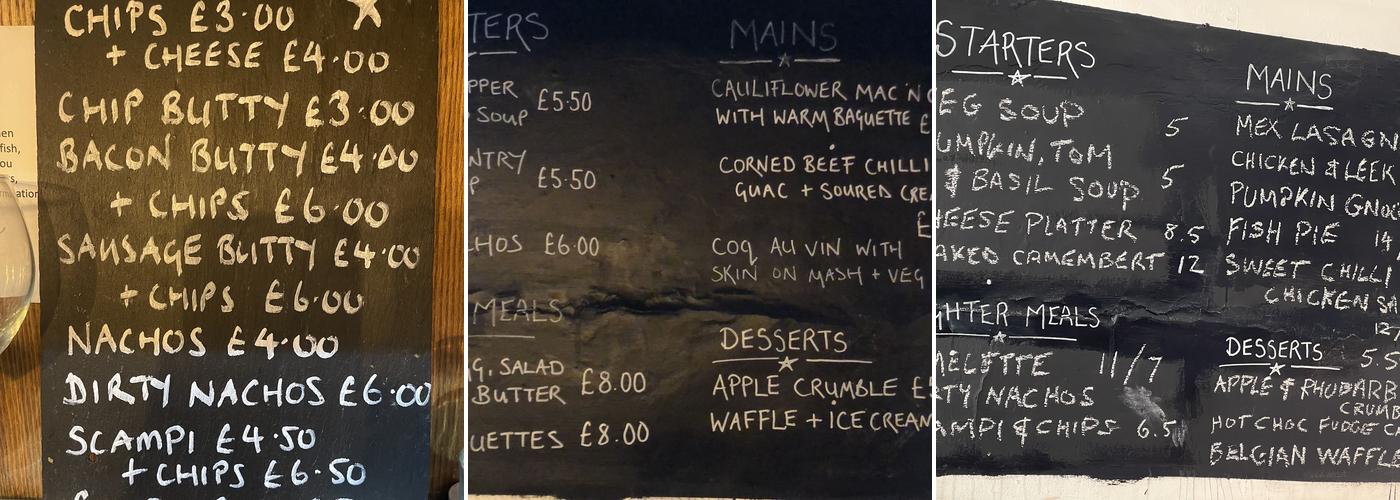 CHIPS £3.00
+ CHEESE £4.00
CHIP BUTTY £3.00
BACON BUTTY £4.00
+ CHIPS £6.00
SAUSAGE BUTTY £4.00
+ CHIPS £6.00
NACHOS £4.00
DIRTY NACHOS £6.00
SCAMPI £4.50
+ CHIPS £6.50
fish,
TERS
PPER £5.50
SOUP
NTRY £5.50
CHOS £6.00
MEALS
SALAD
BUTTER £8.00
UETTES £8.00
MAINS
CAULIFLOWER MAC 'N
WITH WARM BAGUETTE £
CORNED BEEF CHILLI
GUAC + SOURED CREA
£
COQ AU VIN WITH
SKIN ON MASH + VEG
DESSERTS
APPLE CRUMBLE £
WAFFLE + ICE CREAM
STARTERS
EG SOUP 5
UMPKIN, TOM
& BASIL SOUP 5
HEESE PLATTER 8.5
AKED CAMEMBERT 12
GHTER MEALS
MELETTE 11/7
RTY NACHOS
AMPI & CHIPS 6.5
MAINS
MEX LASAGN
CHICKEN & LEEK
PUMPKIN GNOC
FISH PIE 14
SWEET CHILLI
CHICKEN SA
12
DESSERTS 5.5
APPLE & RHUBARB
CRUMB
HOT CHOC FUDGE CA
BELGIAN WAFFLE